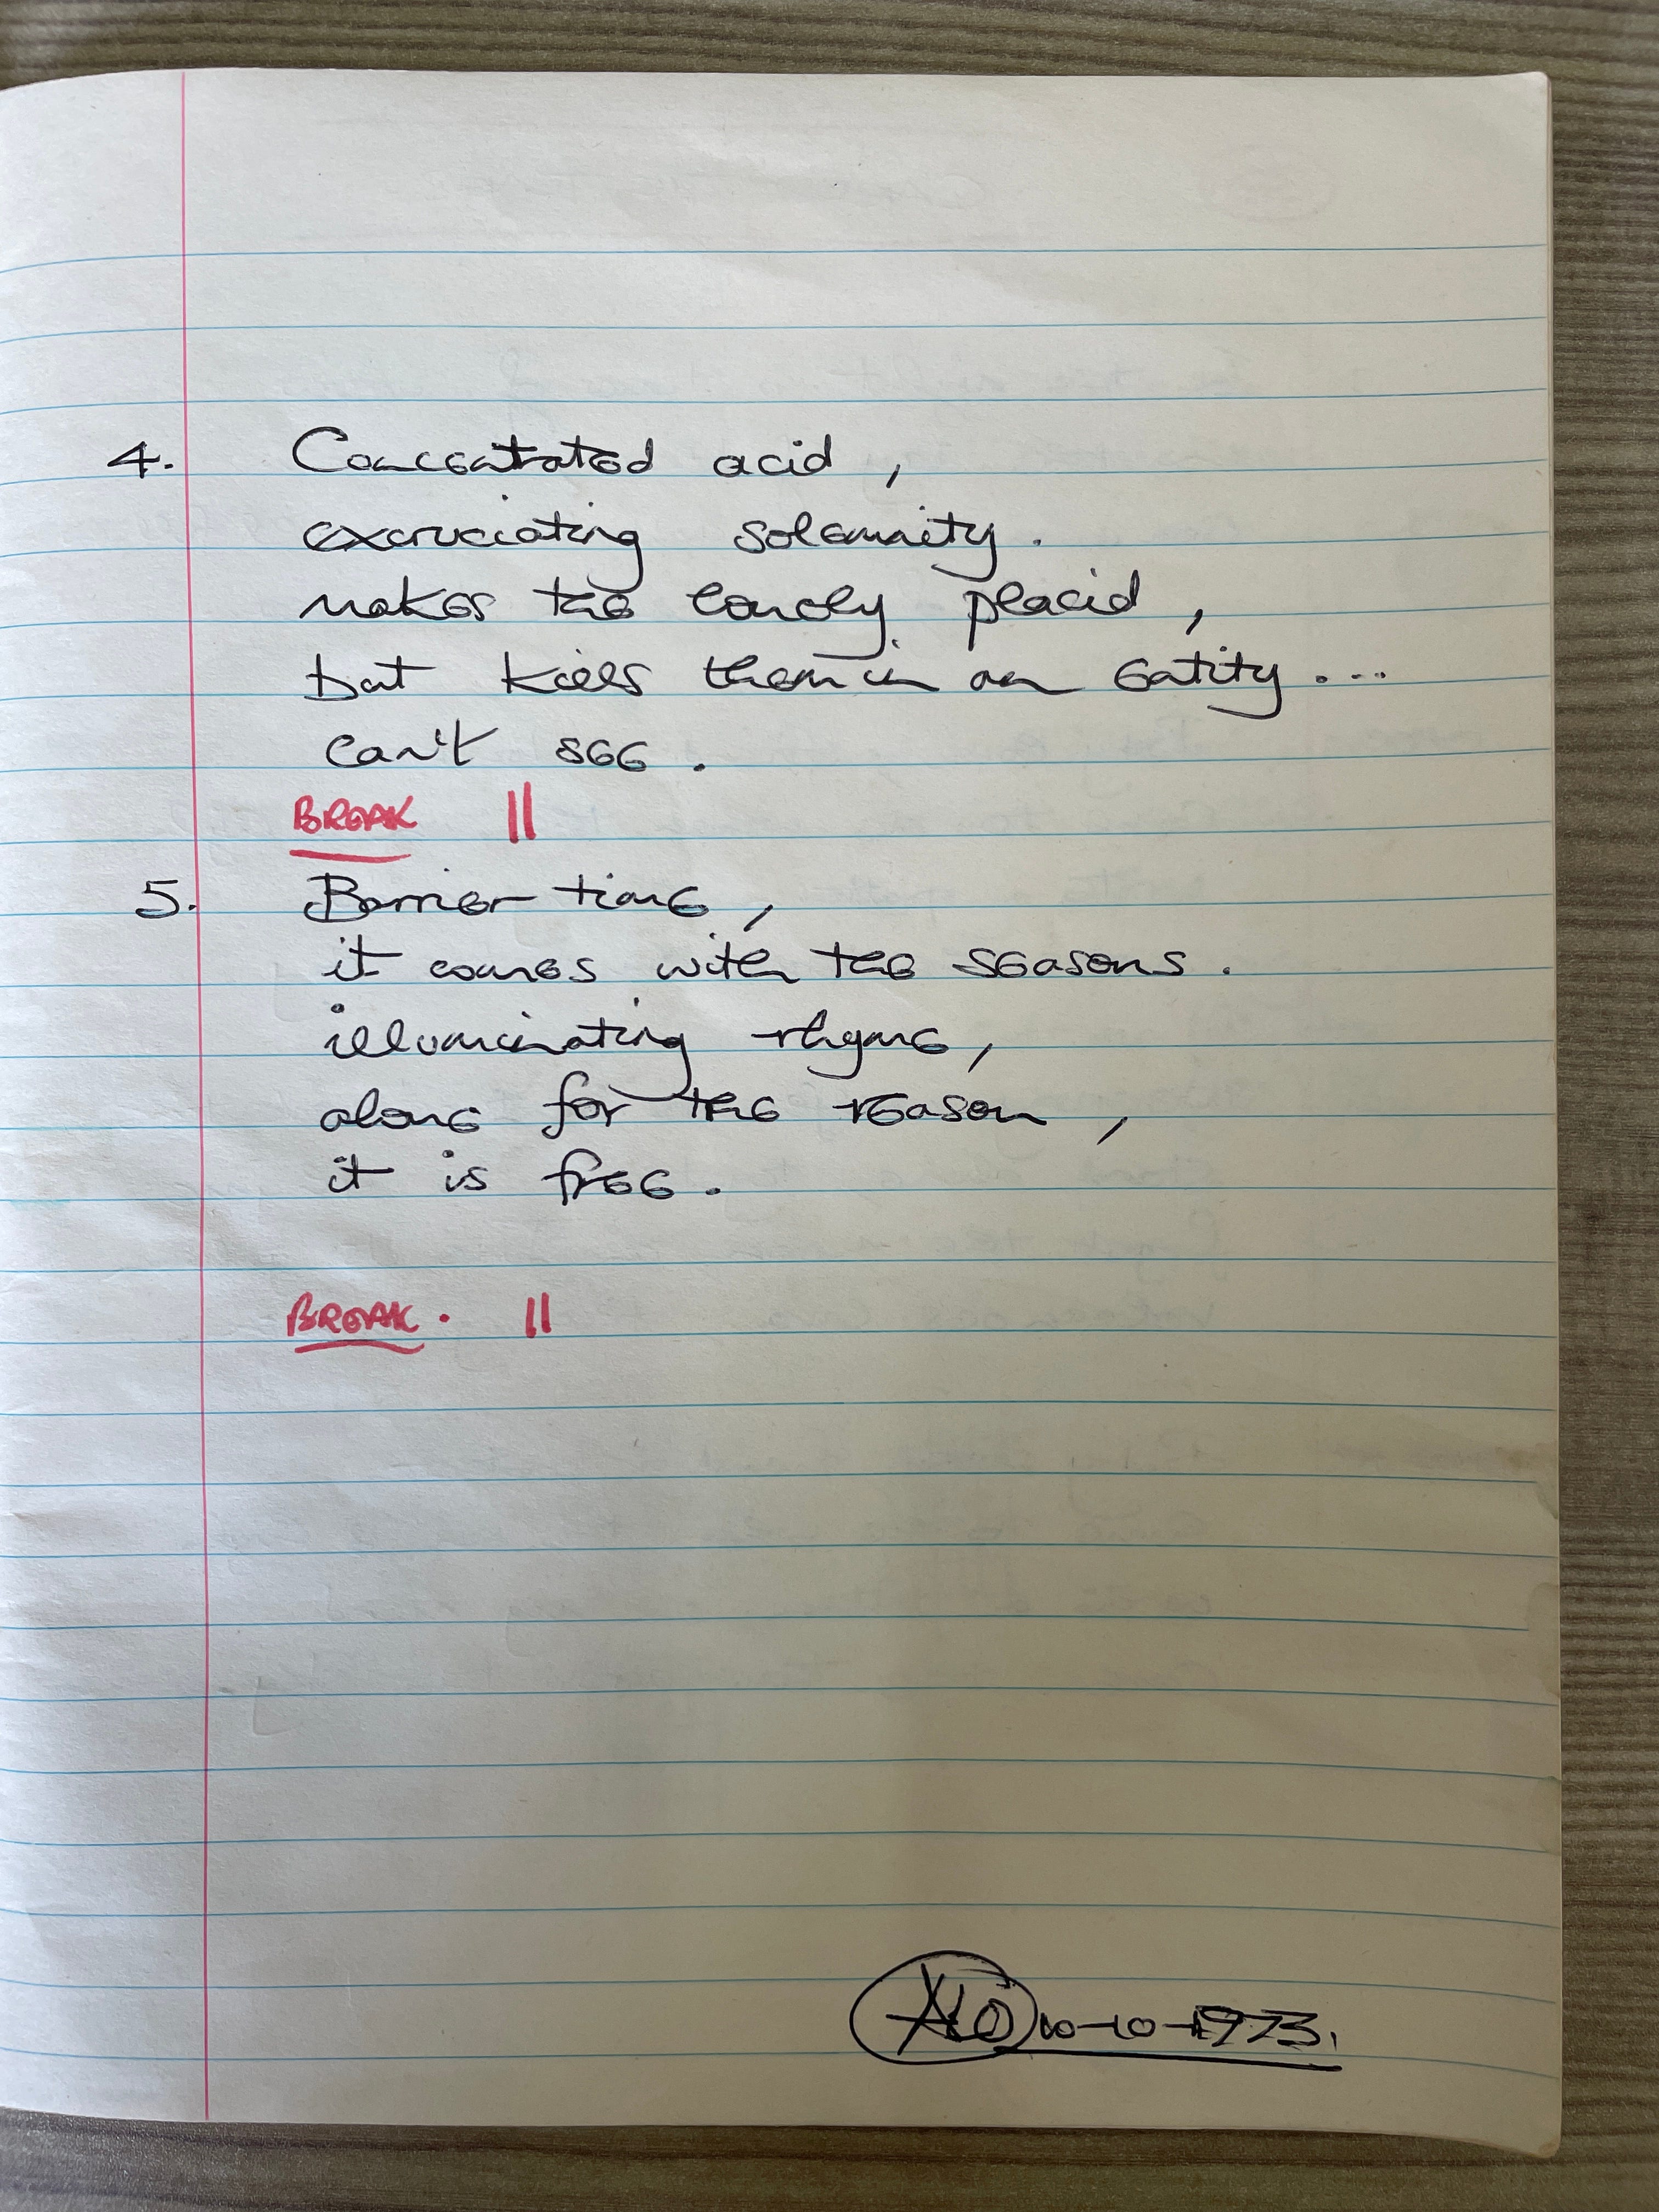 4. Concentrated acid,
excruciating solemnity.
makes the lonely placid,
but kills them in an entity...
can't see.
BREAK ||
5. Barrier time,
it comes with the seasons.
illuminating rhyme,
alone for the reason,
it is free.
BREAK. ||
10-10-1973.